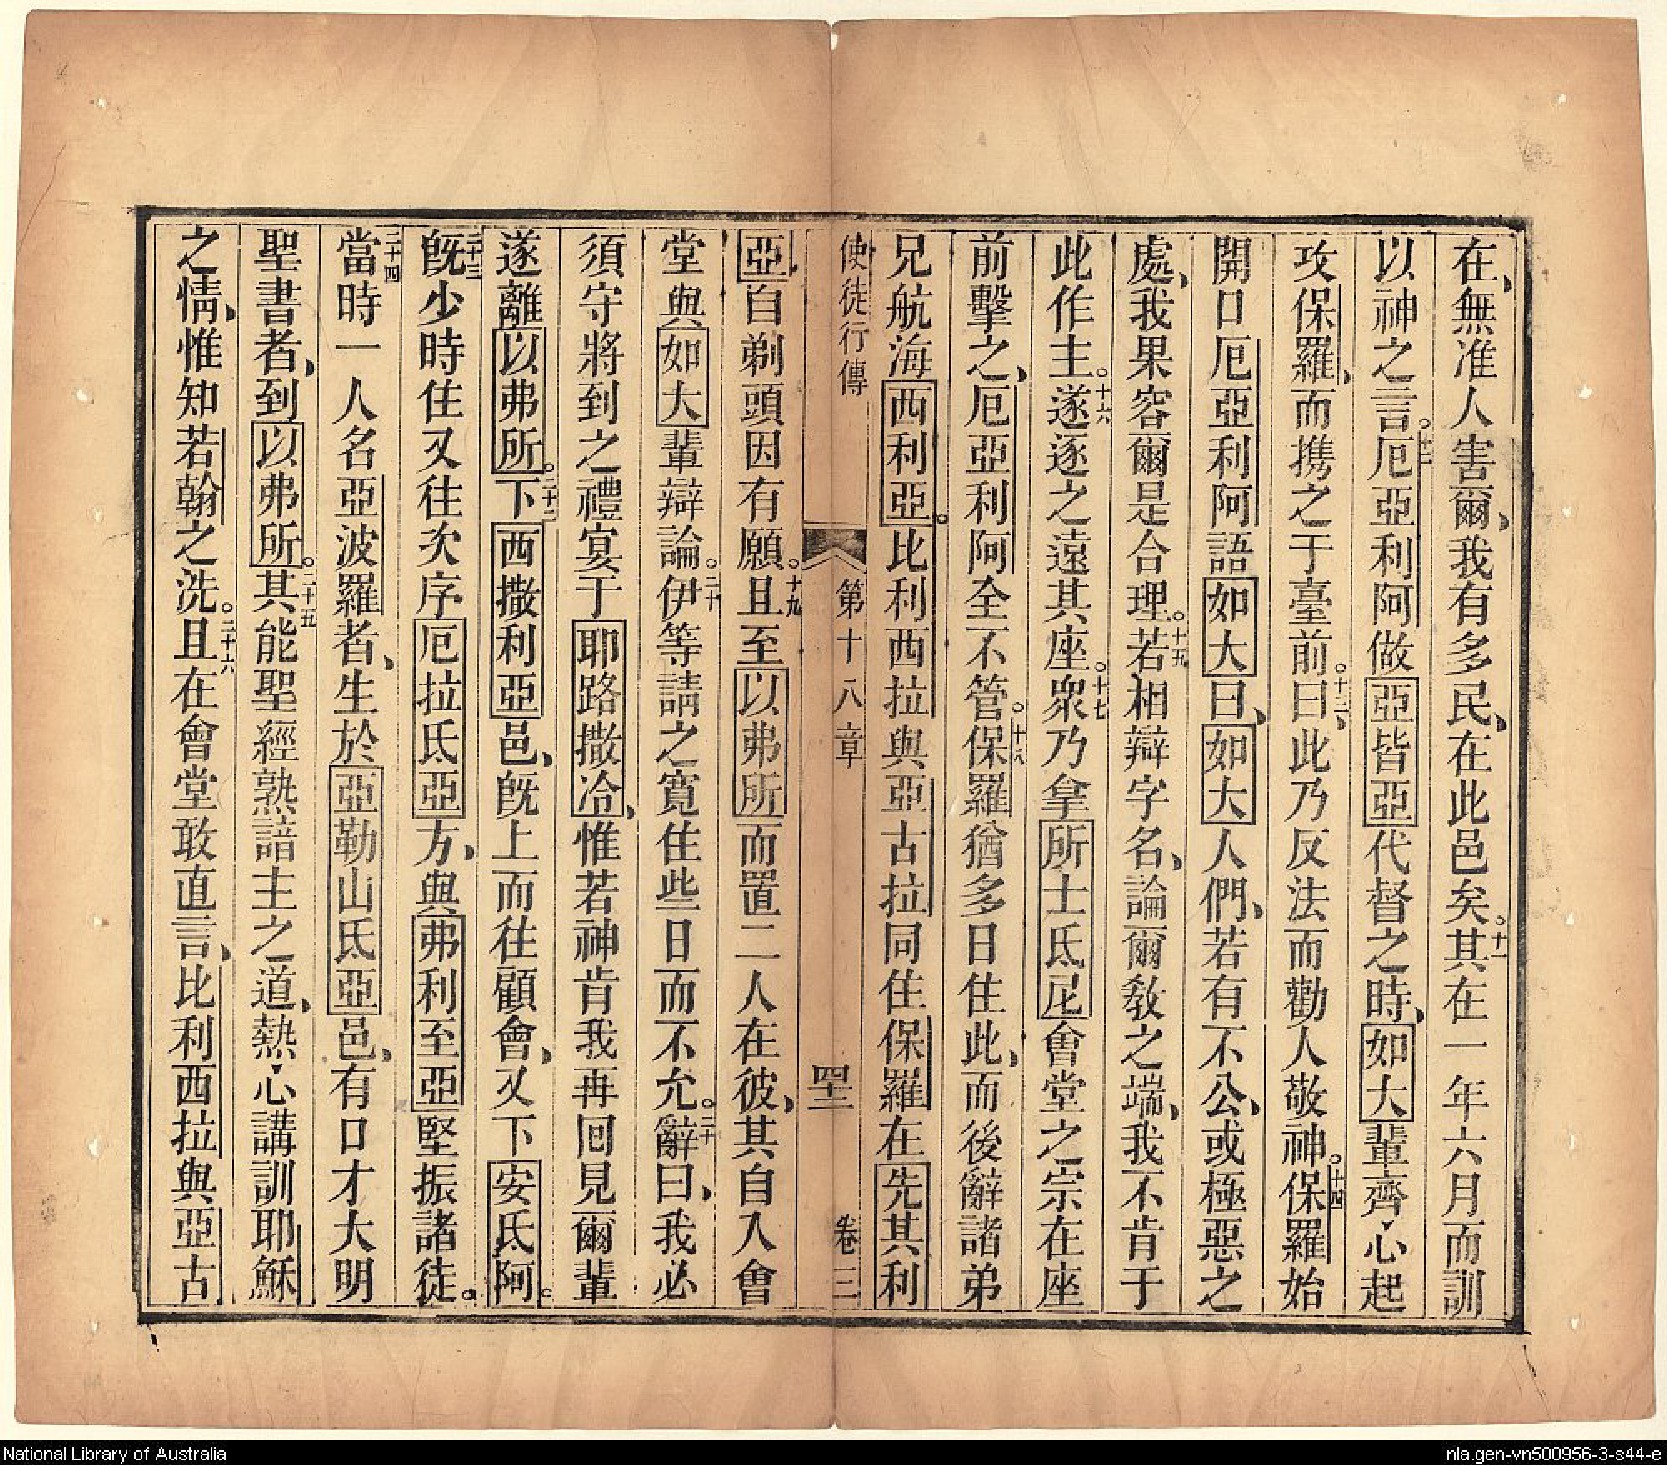 在、無准人害爾、我有多民、在此邑矣。十一其在一年六月而訓
以神之言。十二厄亞利阿做亞皆亞代督之時、如大輩齊心起
攻保羅、而携之于臺前。十三曰、此乃反法而勸人敬神。十四保羅始
開口厄亞利阿語如大曰、如大人們、若有不公、或極惡之
處、我果容爾是合理。十五若相辯字名、論爾教之端、我不肯于
此作主。十六遂逐之遠其座。十七衆乃拿所士氐尼會堂之宗在座
前擊之、厄亞利阿全不管。十八保羅猶多日住此、而後辭諸弟
兄航海西利亞。比利西拉與亞古拉同住保羅在先其利
使徒行傳 第十八章 四十三 卷三
亞自剃頭因有願。十九且至以弗所而置二人在彼、其自入會
堂與如大輩辯論。二十伊等請之寬住些日而不允。二十一辭曰、我必
須守將到之禮宴于耶路撒冷、惟若神肯我再囘見爾輩
遂離以弗所。二十二下西撒利亞邑、旣上而往顧會、又下安氐阿。
二十三旣少時住又往次序厄拉氐亞方、與弗利至亞堅振諸徒。
二十四當時一人名亞波羅者、生於亞勒山氐亞邑、有口才大明
聖書者、到以弗所。二十五其能聖經熟諳主之道、熱心講訓耶穌
之情、惟知若翰之洗。二十六且在會堂敢直言、比利西拉與亞古
National Library of Australia
nla.gen-vn500956-3-s44-e